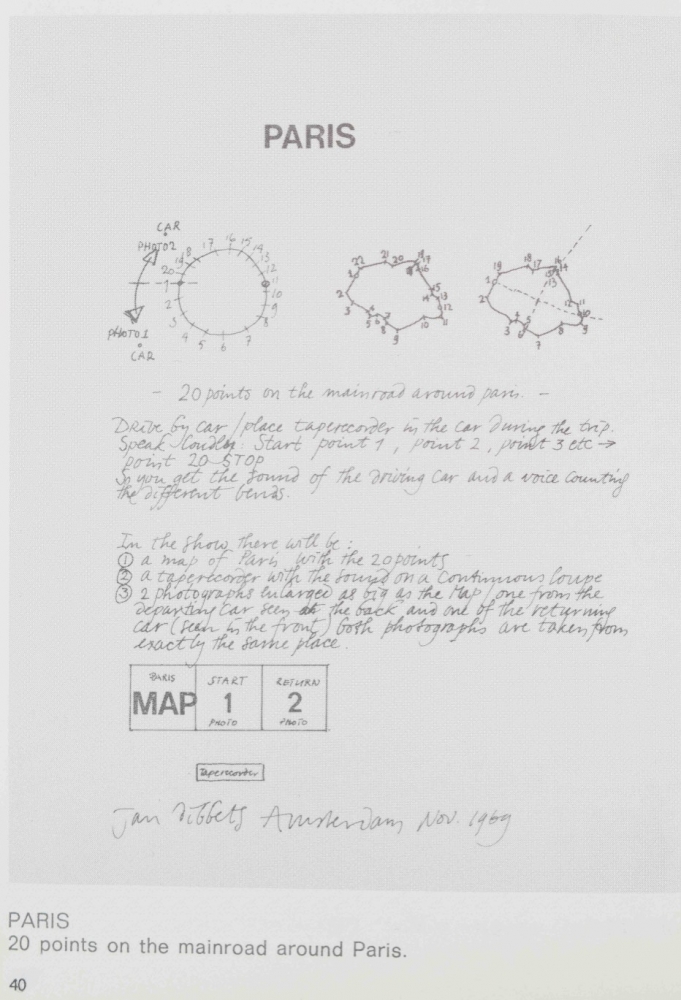 PARIS
CAR
PHOTO2
PHOTO1
CAR
17 16 15 14 13 12 11 10 9 8 7 6 5 4 3 2 1 20
22 21 20
16 15 13 12 11 10 9 8 3 2
19 18 17
14 13 12 11 9 8 7 6 3 2 1
- 20 points on the mainroad around paris. -
DRive by car / place taperecorder in the car during the trip.
Speak Loudly: Start point 1, point 2, point 3 etc →
point 20 STOP
So you get the sound of the driving car and a voice counting
the different bends.
In the show there will be:
① a map of Paris with the 20 points
② a taperecorder with the sound on a continuous loupe
③ 2 photographs enlarged as big as the Map / one from the
departing car seen at the back and one of the returning
car (seen in the front) both photographs are taken from
exactly the same place.
PARIS MAP
START 1 PHOTO
RETURN 2 PHOTO
Taperecorder
Jan Dibbets Amsterdam Nov. 1969
PARIS
20 points on the mainroad around Paris.
40